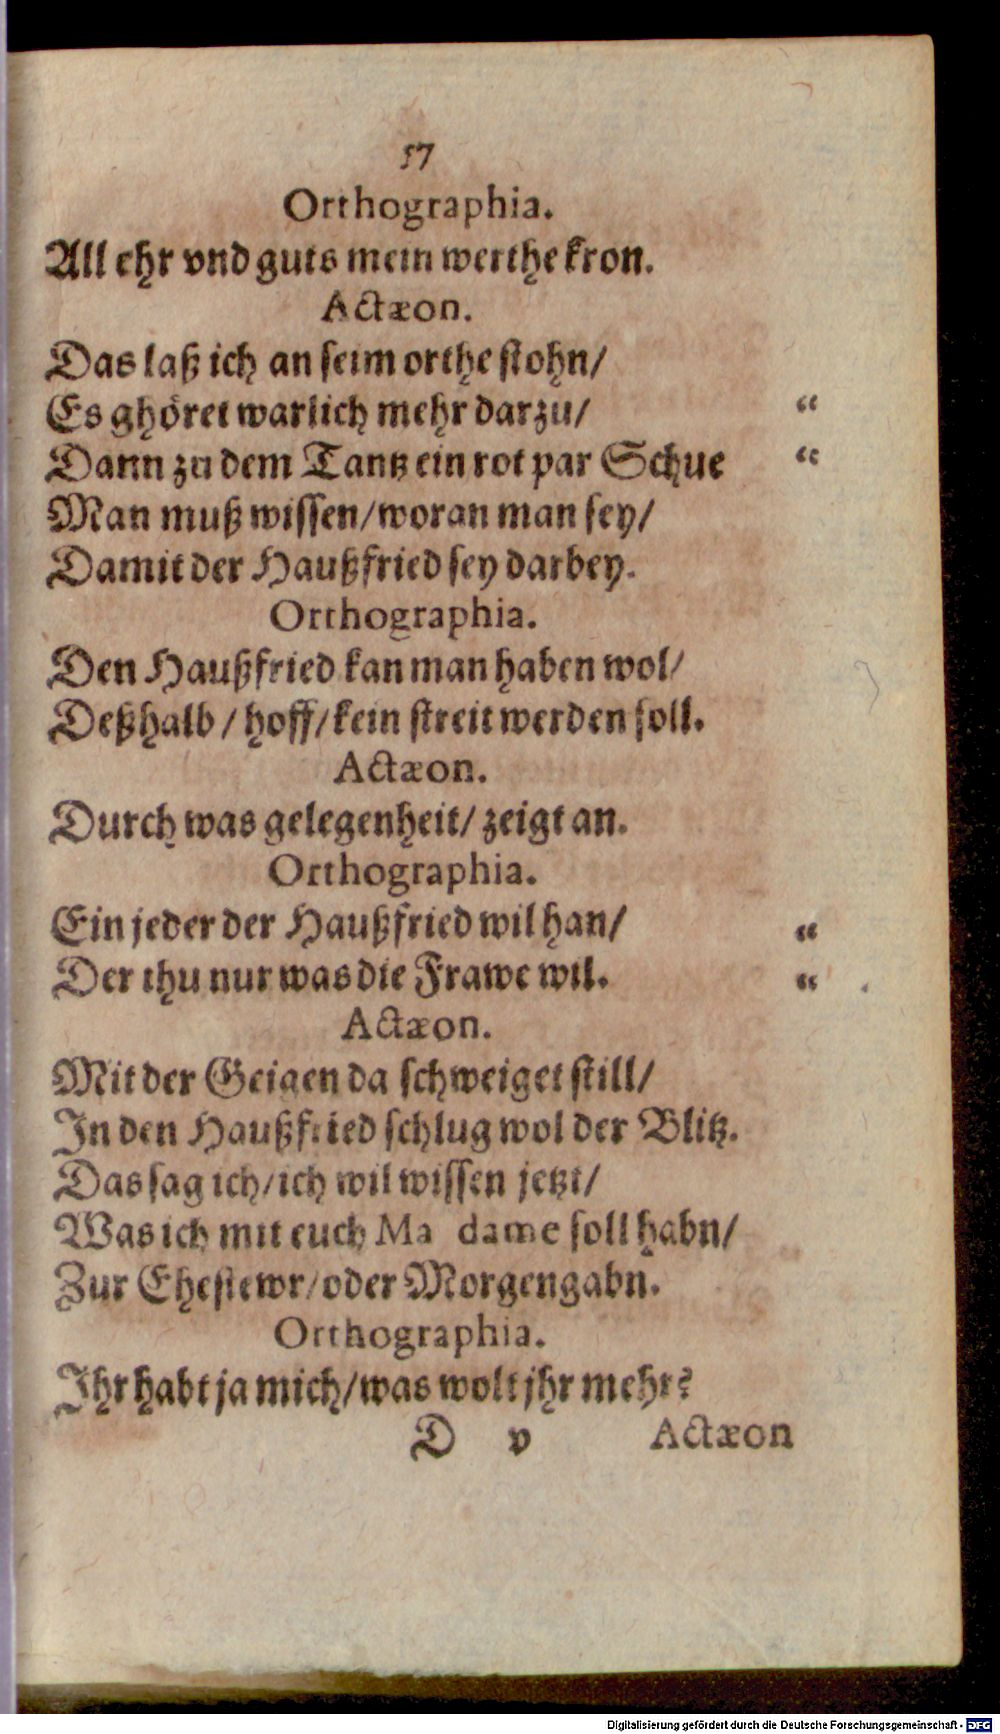 57
Orthographia.
All ehr vnd guts mein werthe kron.
Actæon.
Das laß ich an seim orthe stohn/
Es ghöret warlich mehr darzu/ “
Dann zu dem Tantz ein rot par Schue “
Man muß wissen/woran man sey/
Damit der Haußfried sey darbey.
Orthographia.
Den Haußfried kan man haben wol/
Deßhalb / hoff/kein streit werden soll.
Actæon.
Durch was gelegenheit/ zeigt an.
Orthographia.
Ein jeder der Haußfried wil han/ “
Der thu nur was die Frawe wil. “
Actæon.
Mit der Geigen da schweiget still/
In den Haußfried schlug wol der Blitz.
Das sag ich/ich wil wissen jetzt/
Was ich mit euch Ma dame soll habn/
Zur Ehestewr/oder Morgengabn.
Orthographia.
Ihr habt ja mich/was wolt jhr mehr?
D v Actæon
Digitalisierung gefördert durch die Deutsche Forschungsgemeinschaft - DFG